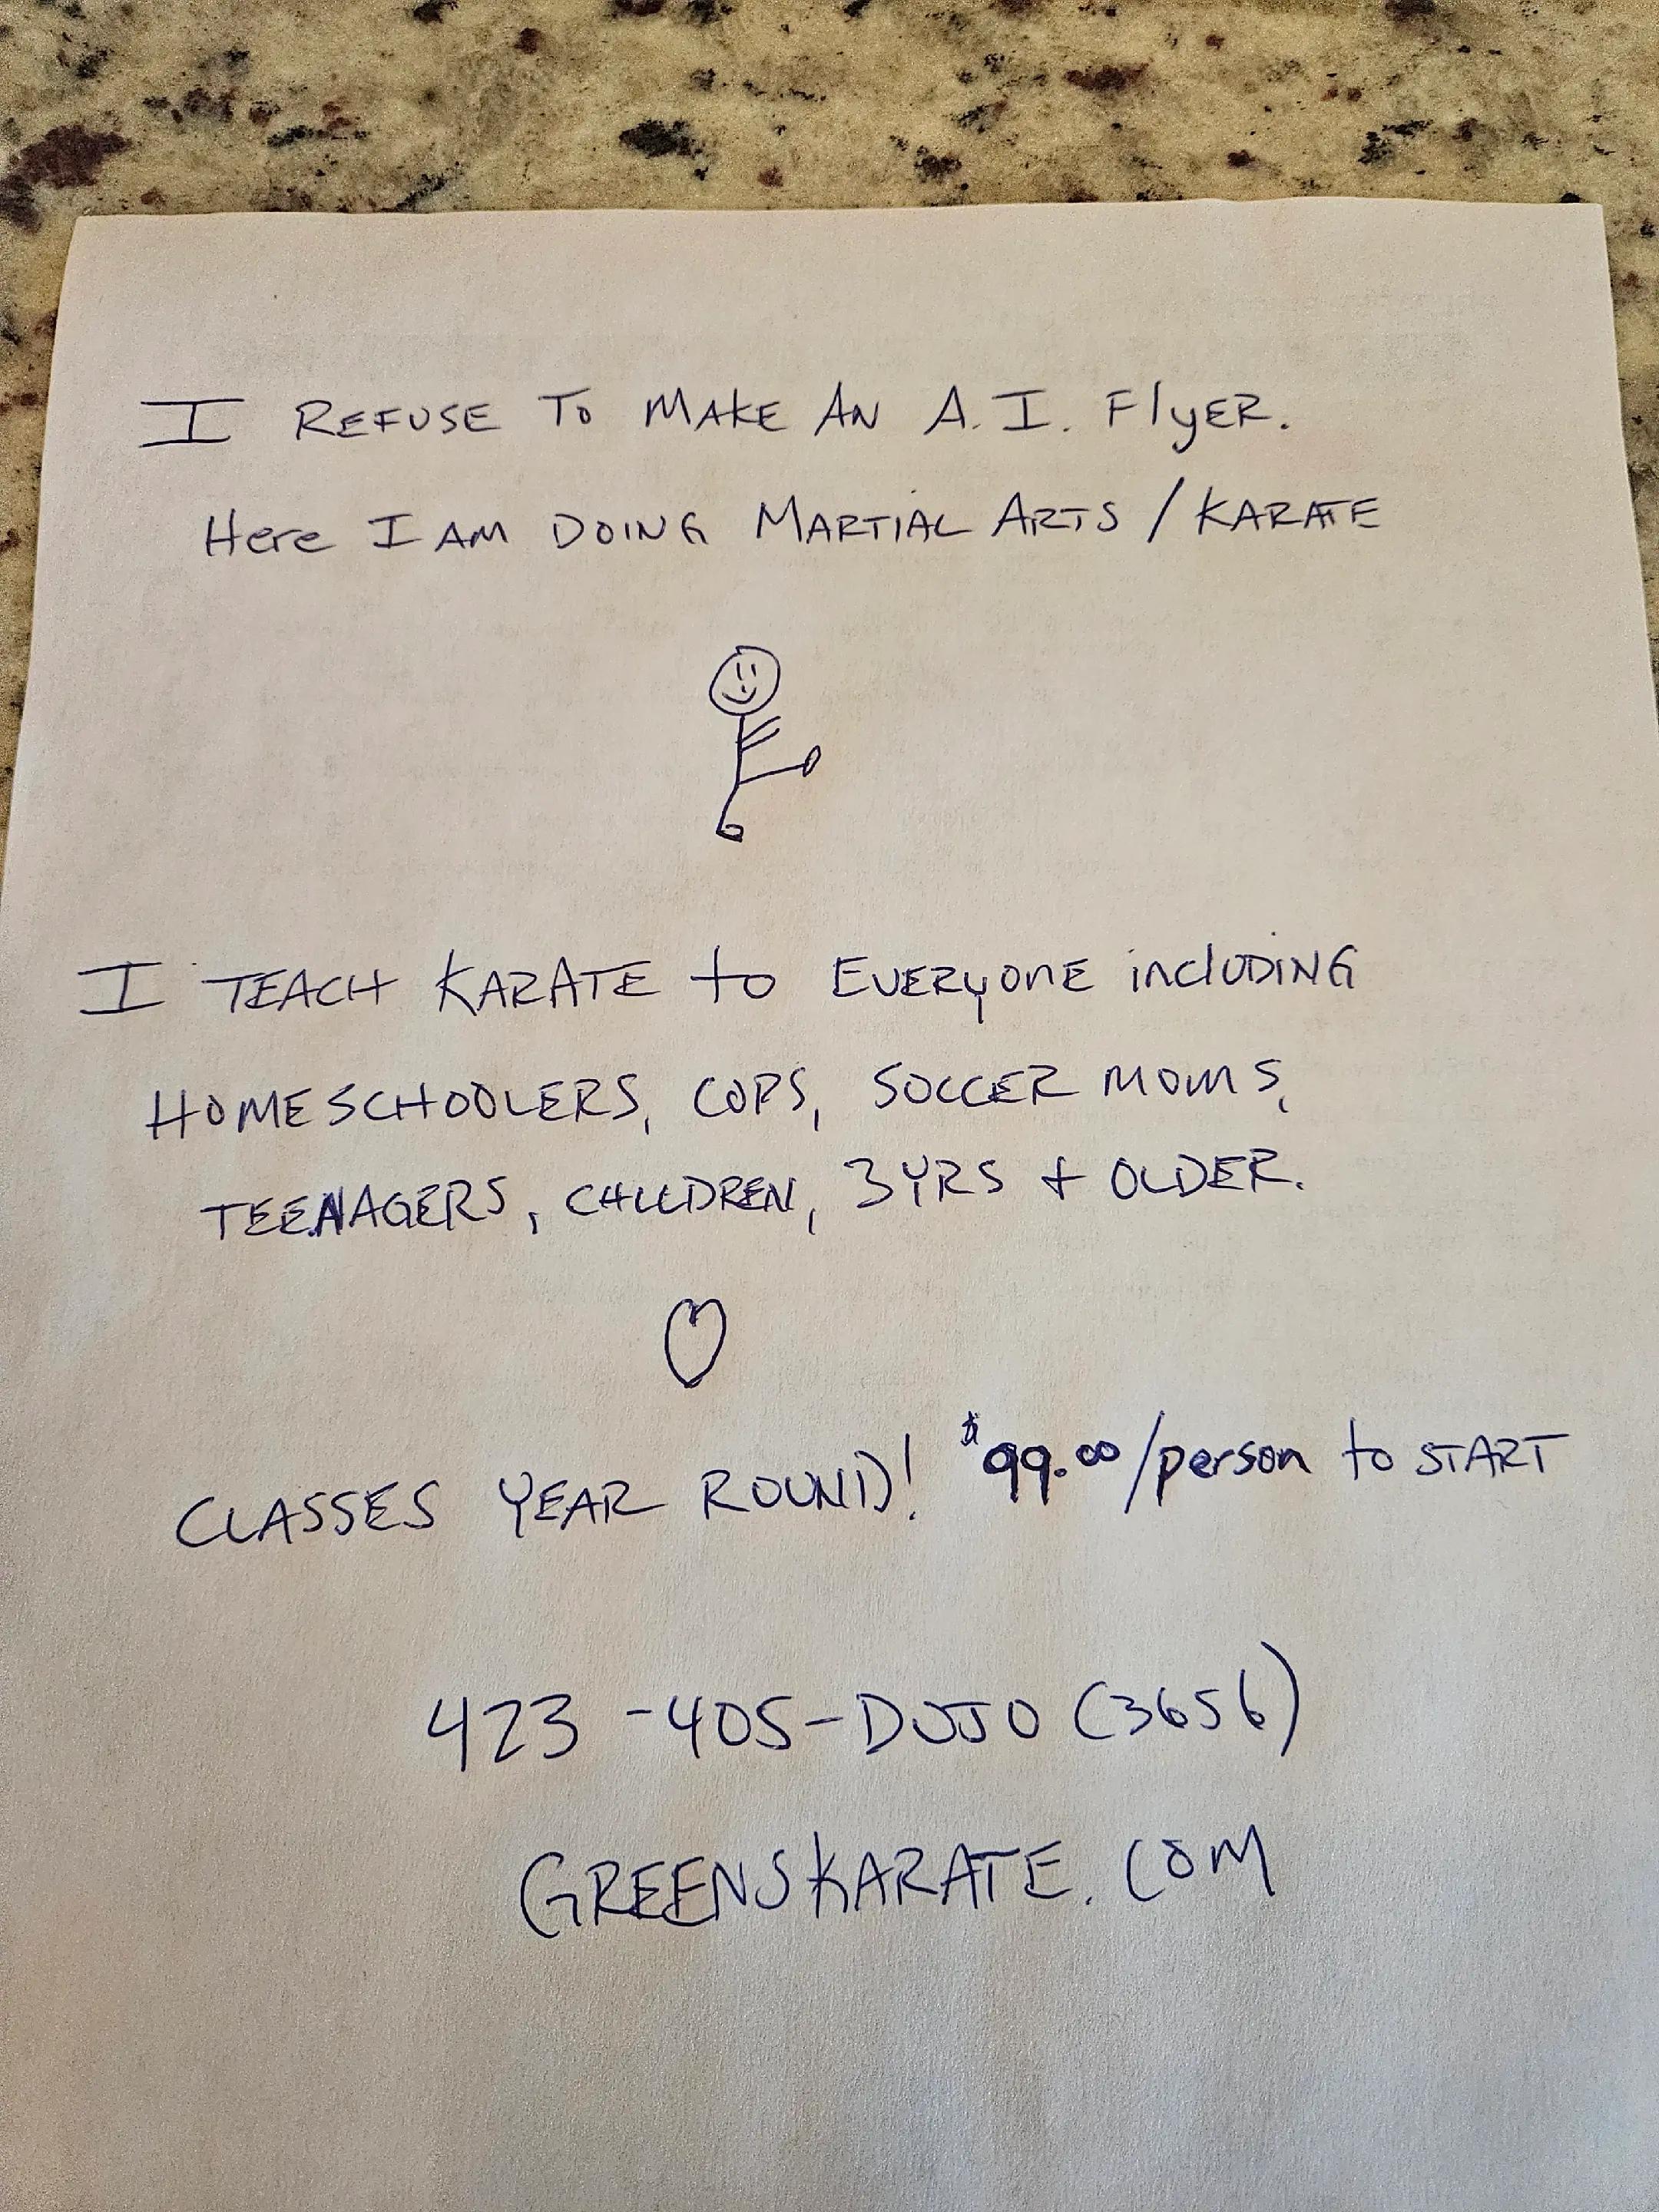 I REFUSE TO MAKE AN A.I. FlyER.
Here I AM DOING MARTIAL ARTS / KARATE
I TEACH KARATE to EVERyONE incluDING
HOMESCHOOLERS, COPS, SOCCER MOMS,
TEENAGERS, CHILDREN, 3 YRS + OLDER.
CLASSES YEAR ROUND! $99.00/person to START
423-405-DOJO (3656)
GREENSKARATE.COM